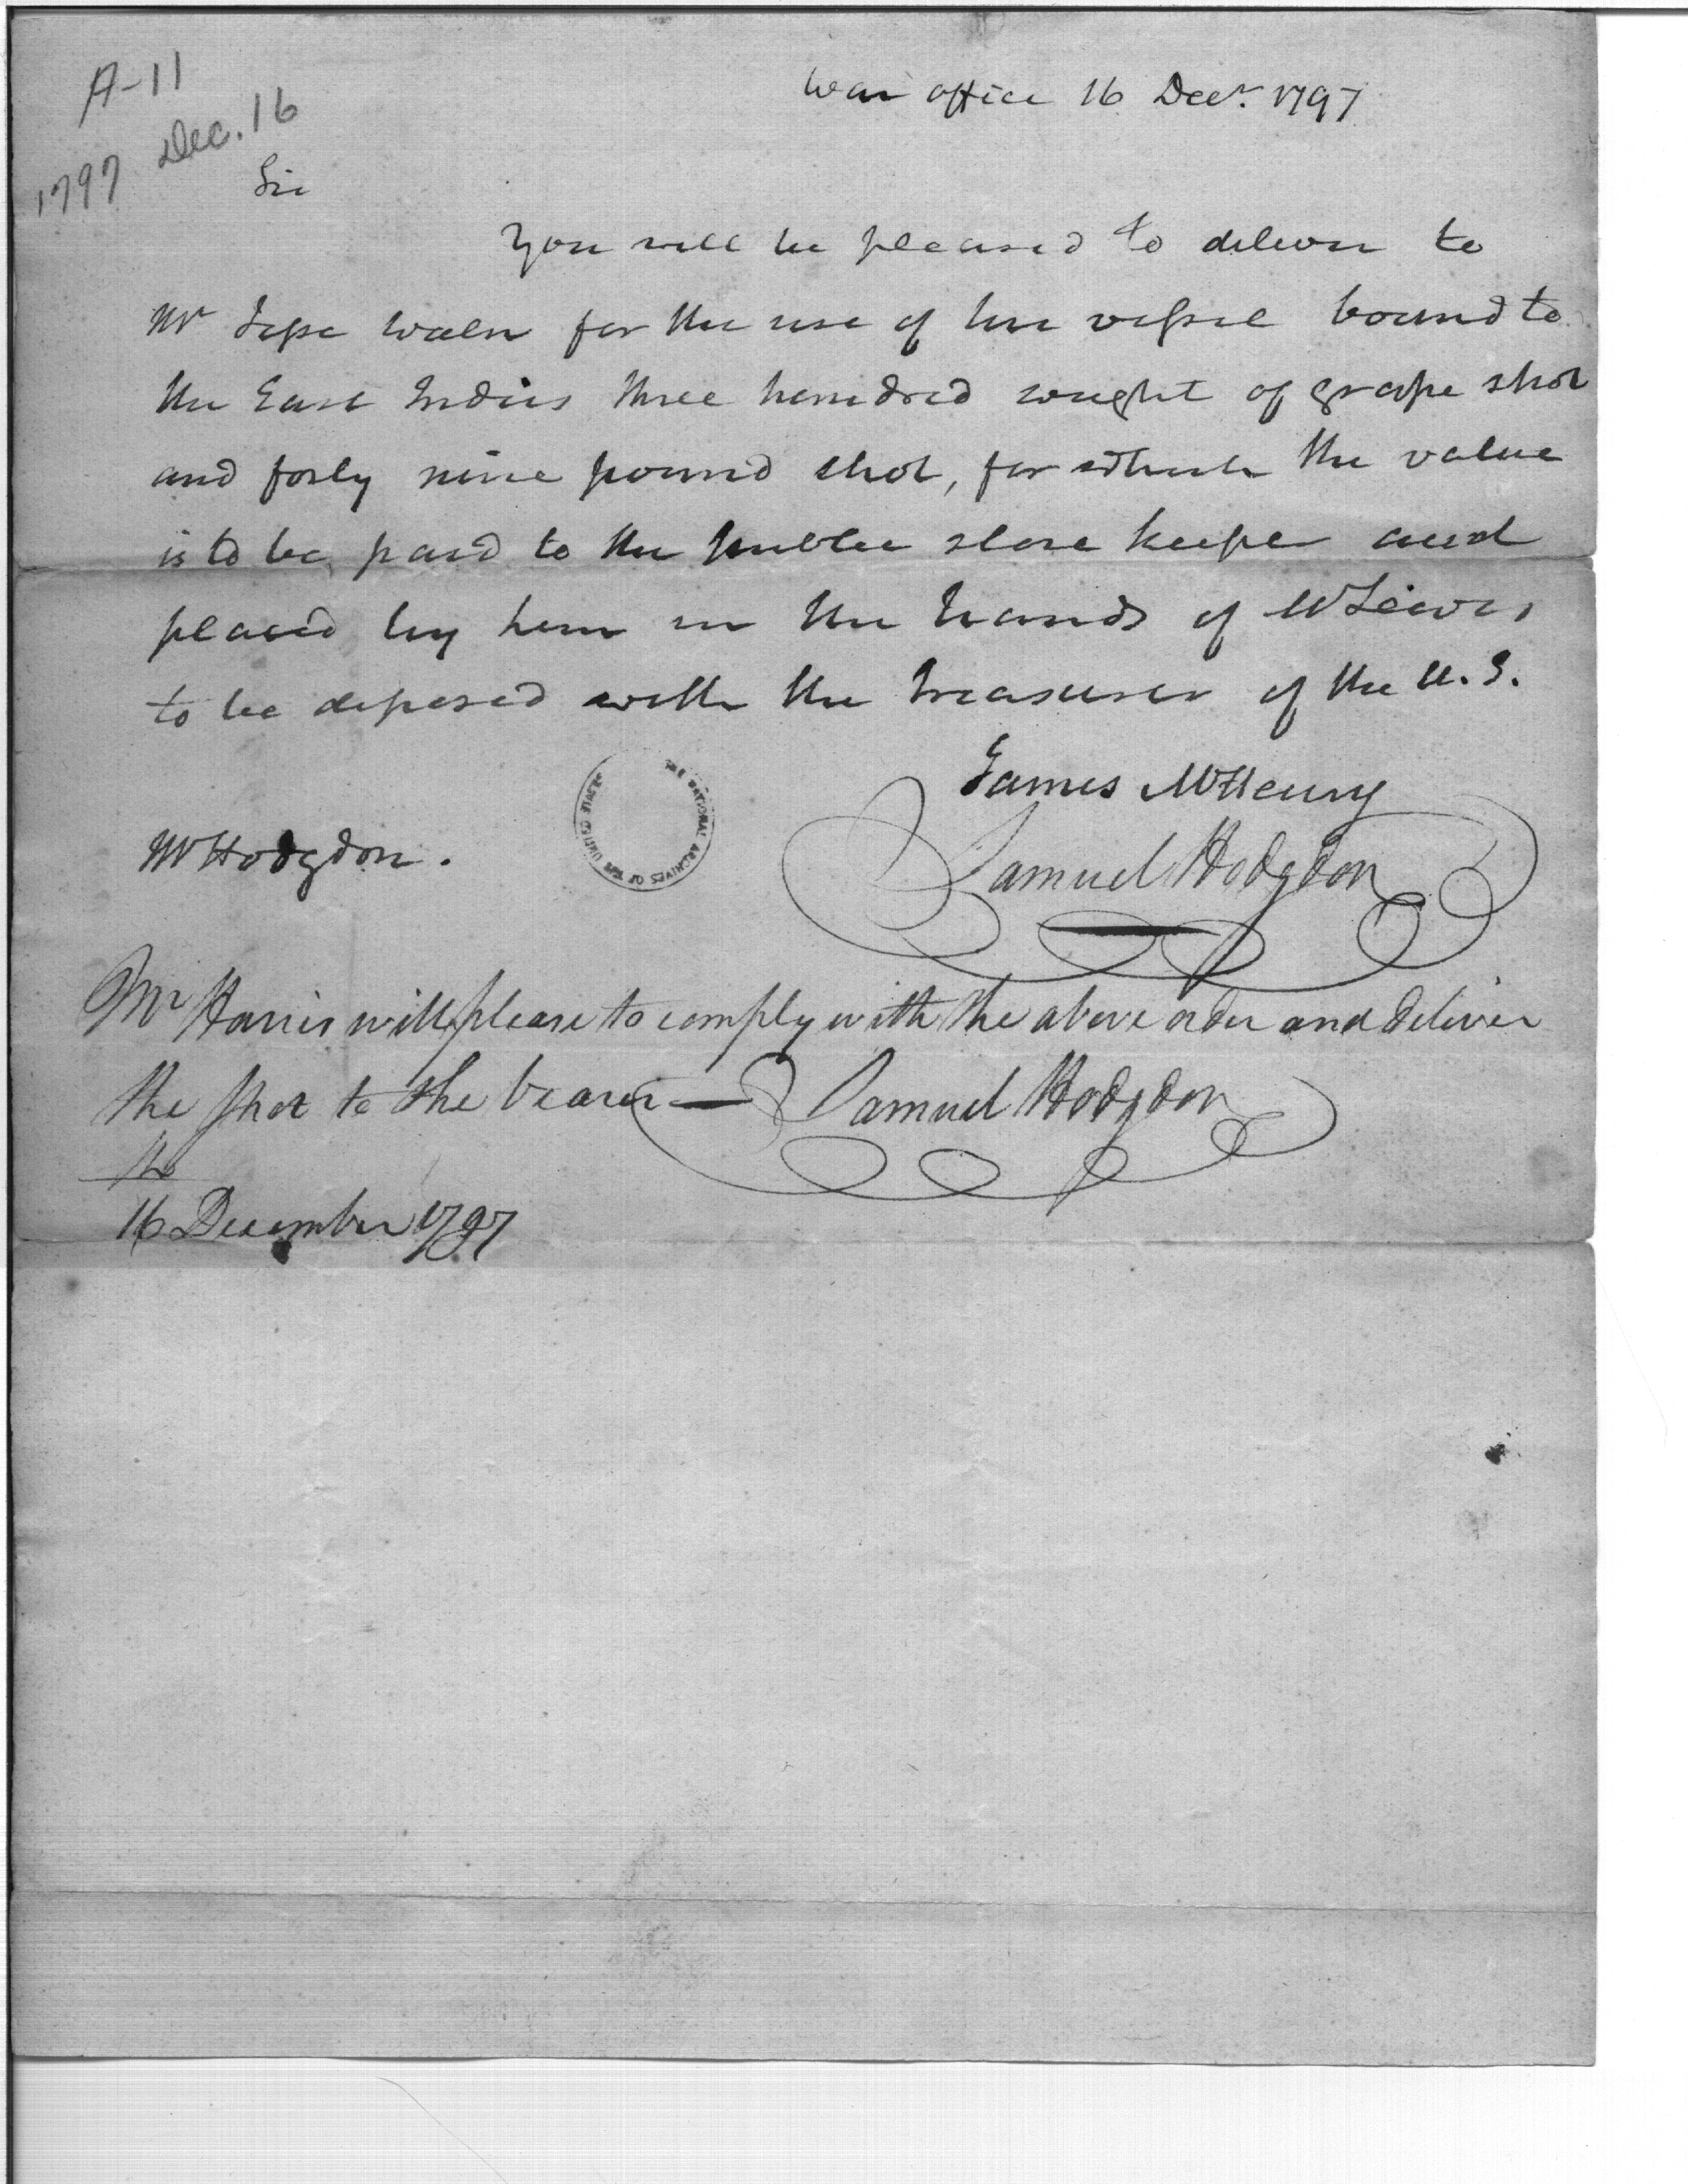 A-11
1797 Dec. 16
War office 16 Decr. 1797
Sir
You will be pleased to deliver to
Mr Jesse Waln for the use of his vessel bound to
the East Indies three hundred weight of grape shot
and forty nine pound shot, for which the value
is to be paid to the public store keeper and
placed by him in the hands of Mr Lewis,
to be deposed with the Treasurer of the U.S.
James McHenry
Samuel Hodgdon
Mr Hodgdon.
THE NATIONAL ARCHIVES OF THE UNITED STATES
Mr Harris will please to comply with the above order and deliver
the shot to the bearer — Samuel Hodgdon
16 December 1797